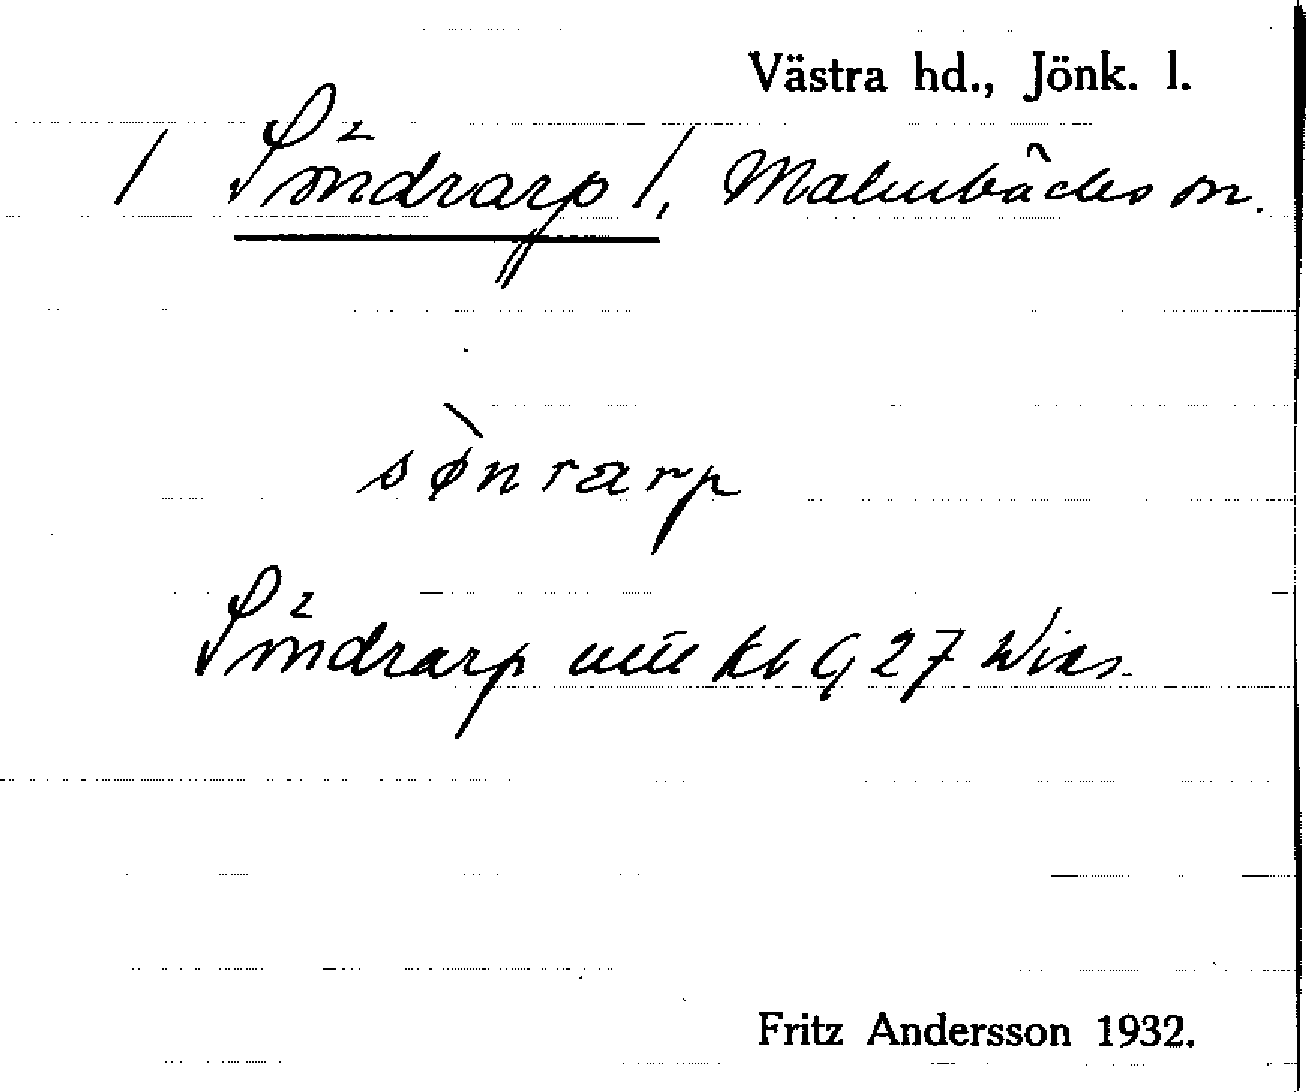 Västra hd., Jönk. l.
/ Söndrarp /, Malmbäcks sn.
sø̀nrarp
Söndrarp uttt kb G 27 Wirs.
Fritz Andersson 1932.